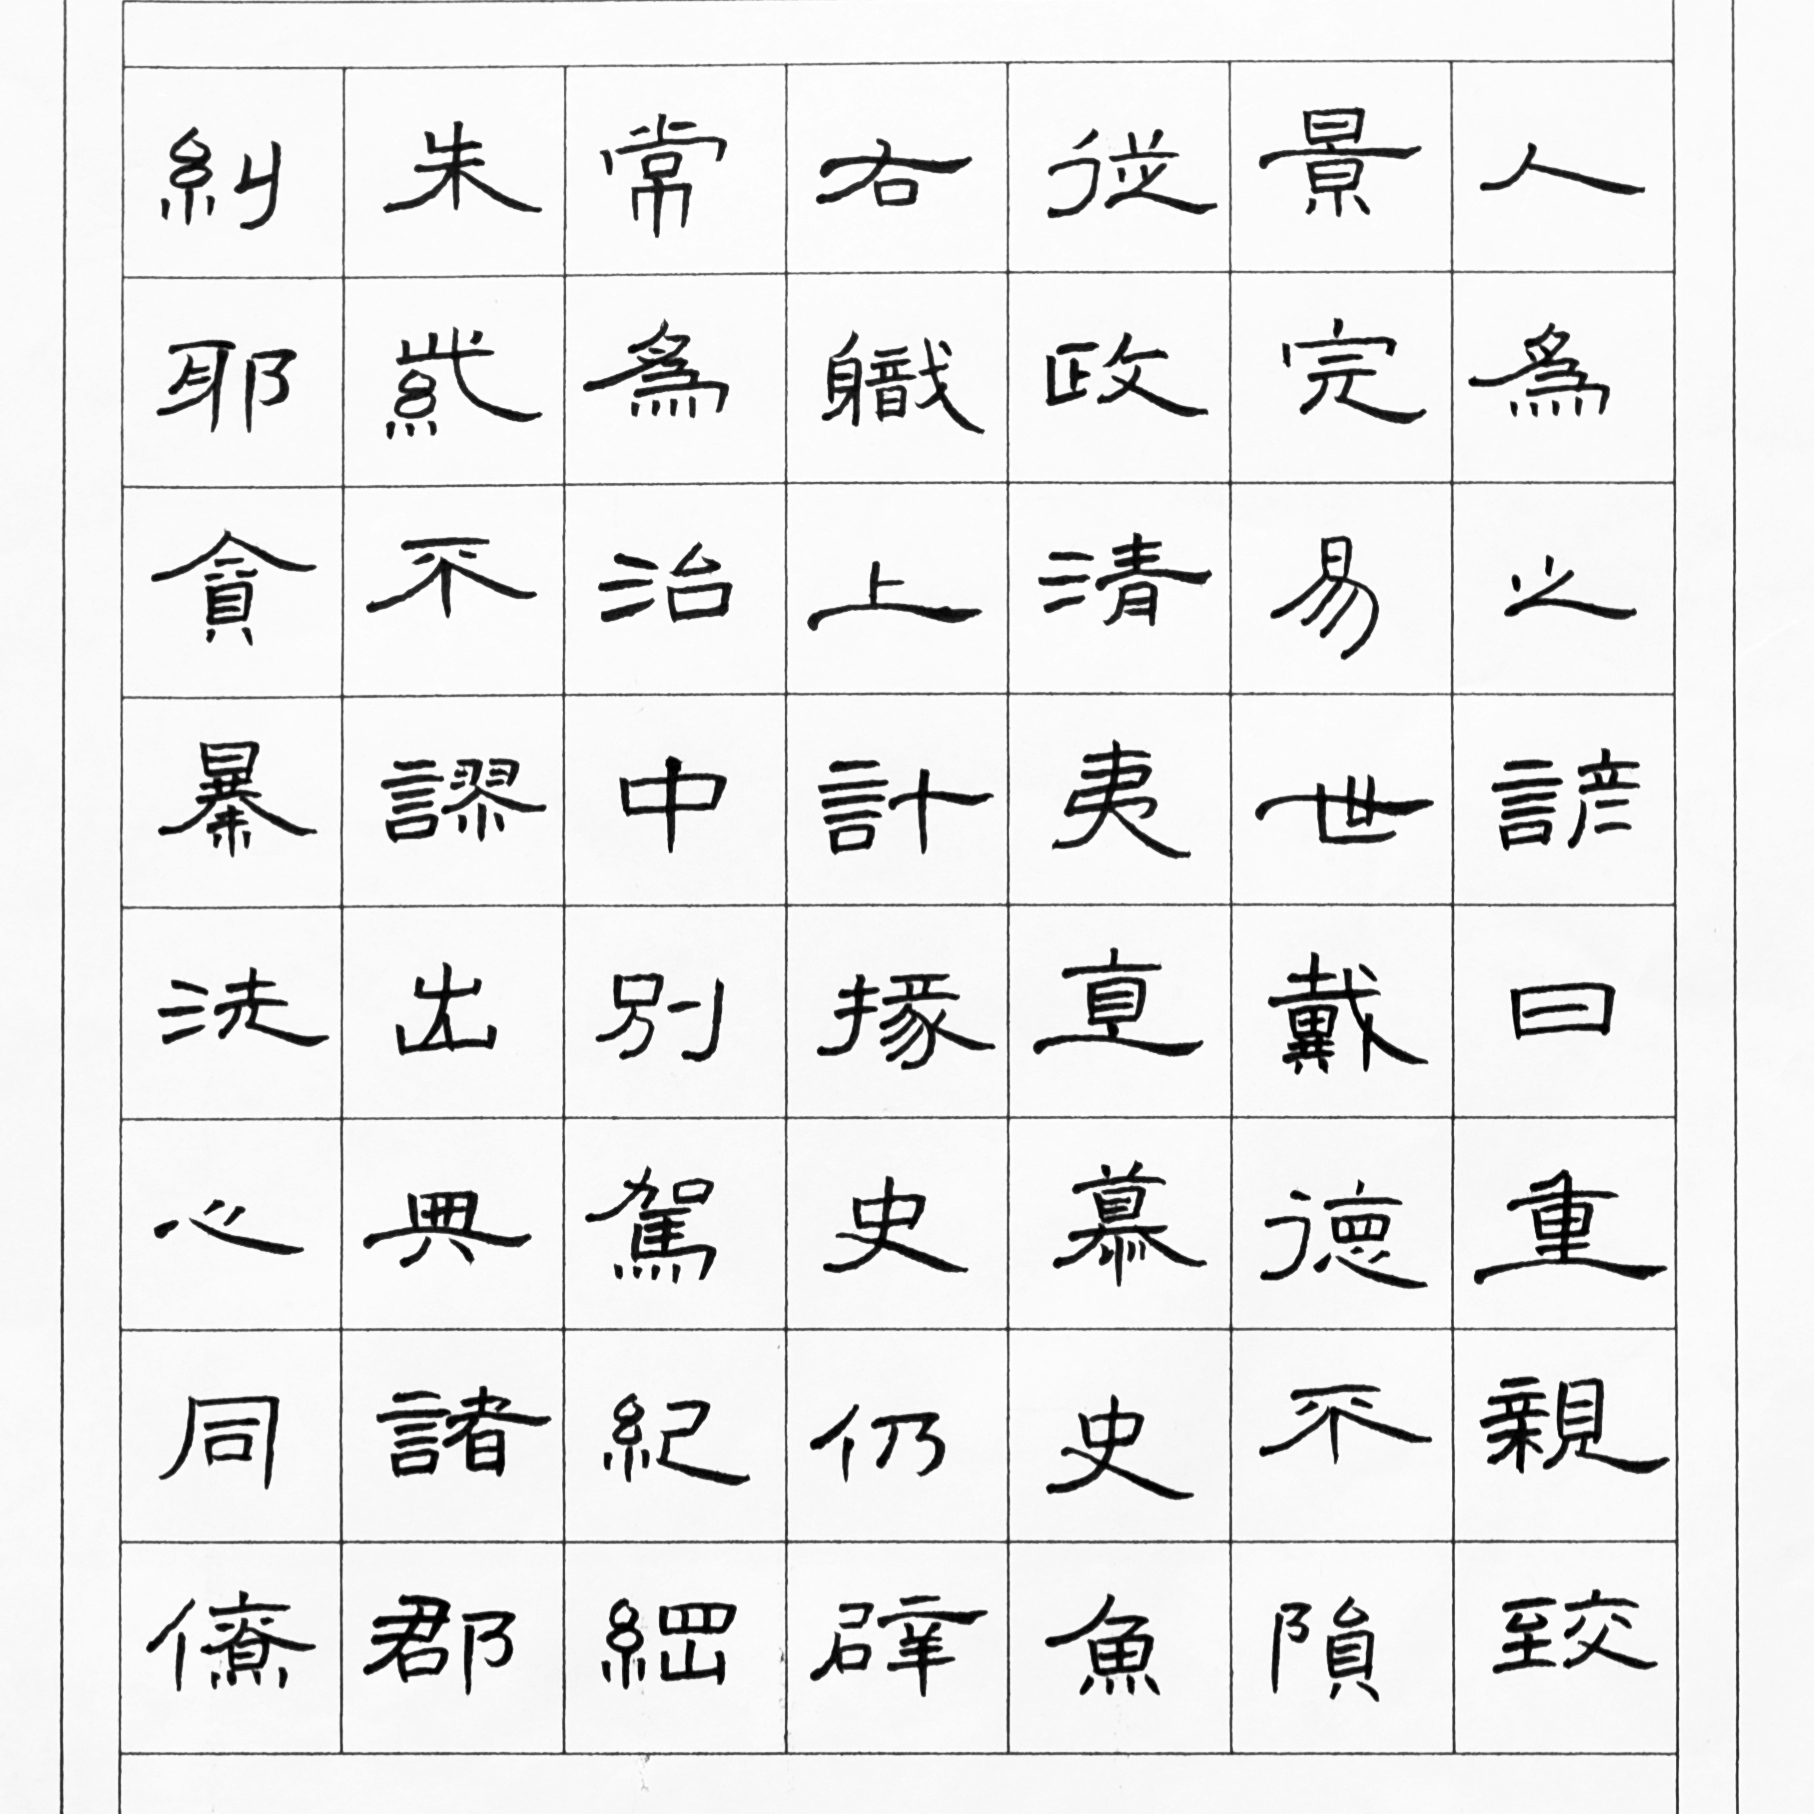 人爲之諺曰重親致
景完易世戴德不隕
從政清夷直慕史魚
右職上計掾史仍辟
常爲治中別駕紀綱
朱紫不謬出典諸郡
糾耶貪暴洗心同僚